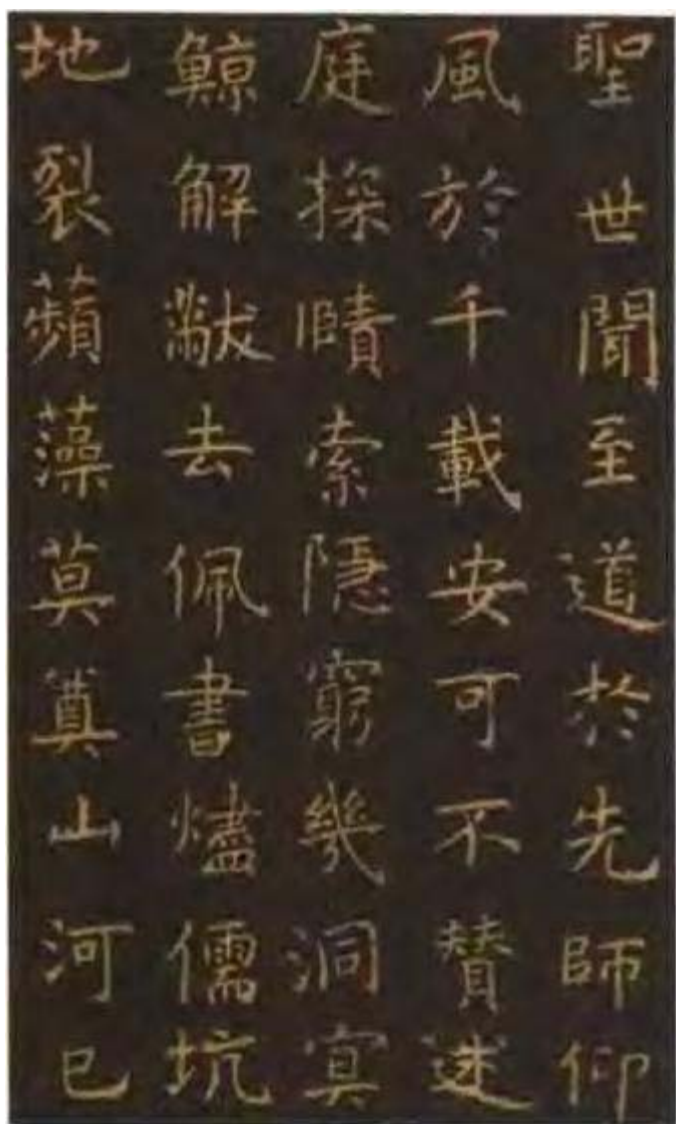 聖世聞至道於先師仰
風於千載安可不贊述
庭探賾索隱窮幾洞冥
鯨解黻去佩書燼儒坑
地裂蘋藻莫奠山河已